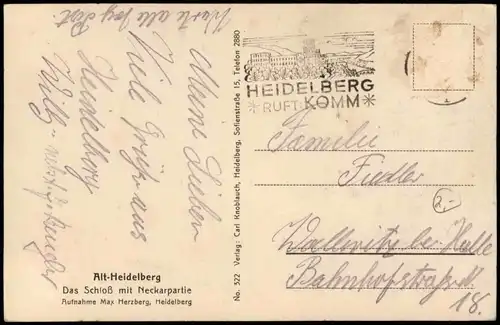 Warte alle
Meine Lieben
Viele Grüße aus
Heidelberg
Willy
Alt-Heidelberg
Das Schloß mit Neckarpartie
Aufnahme Max Herzberg, Heidelberg
No. 522 Verlag: Carl Knoblauch, Heidelberg, Sofienstraße 15, Telefon 2880
HEIDELBERG
*RUFT: KOMM*
Familie
Fiedler
2,-
Wallwitz bei Halle
Bahnhofstraße
18.